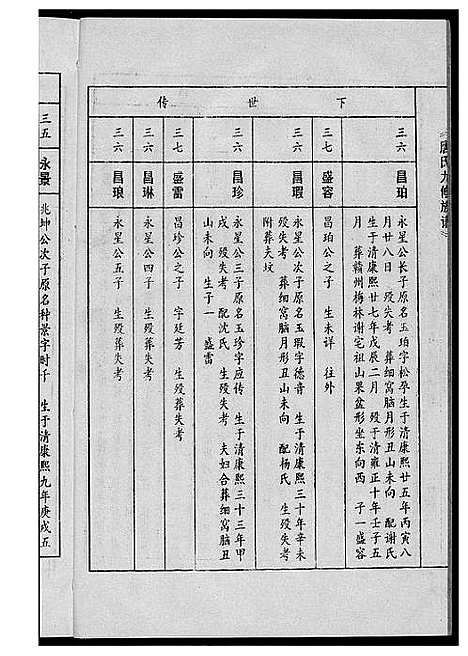 唐氏九修族谱
下世传
三六 昌珀
永星公长子原名玉珀字松孕生于清康熙廿五年丙寅八
月廿八日 殁失考 葬细窝脑月形丑山未向 配谢氏
生于清康熙廿七年戊辰二月 殁于清雍正十年壬子五
月 葬赣州梅林谢宅祖山果盆形坐东向西 子一盛容
三七 盛容
昌珀公之子 生未详 往外
三六 昌瑕
永星公次子原名玉瑕字德音 生于清康熙三十年辛未
殁失考 葬细窝脑月形丑山未向 配杨氏 生殁失考
附葬夫坟
三六 昌珍
永星公三子原名玉珍字应传 生于清康熙三十三年甲
戌 殁失考 配沈氏 生殁失考 夫妇合葬细窝脑丑
山未向 生子一 盛雷
三七 盛雷
昌珍公之子 字廷芳 生殁葬失考
三六 昌琳
永星公四子 生殁葬失考
三六 昌琅
永星公五子 生殁葬失考
三五 永景
兆坤公次子原名种景字时千 生于清康熙九年庚戌五